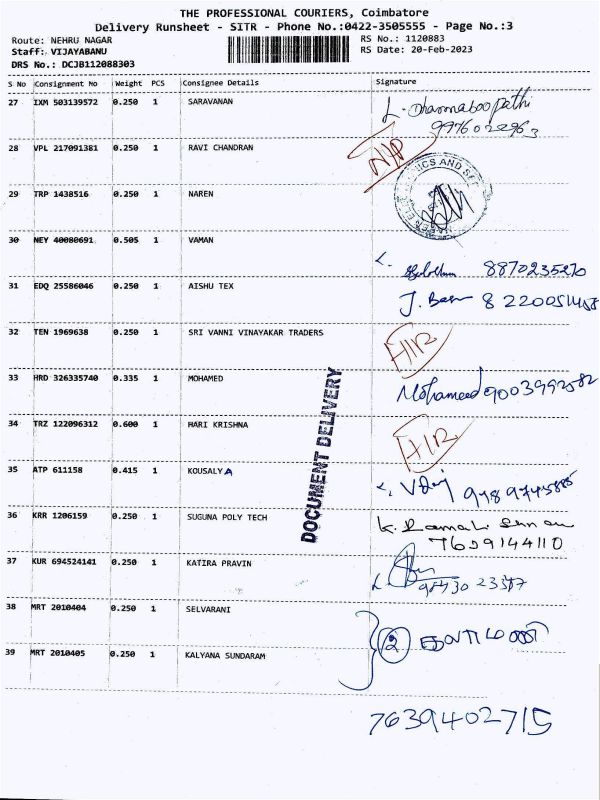 THE PROFESSIONAL COURIERS, Coimbatore
Delivery Runsheet - SITR - Phone No.:0422-3505555 - Page No.:3
Route: NEHRU NAGAR RS No.: 1120883
Staff: VIJAYABANU RS Date: 20-Feb-2023
DRS No.: DCJB112088303
S No Consignment No Weight PCS Consignee Details Signature
27 IXM 503139572 0.250 1 SARAVANAN
28 VPL 217091381 0.250 1 RAVI CHANDRAN
29 TRP 1438516 0.250 1 NAREN
30 NEY 40080691 0.505 1 VAMAN 8870235270
31 EDQ 25586046 0.250 1 AISHU TEX
32 TEN 1969638 0.250 1 SRI VANNI VINAYAKAR TRADERS
33 HRD 326335740 0.335 1 MOHAMED Mohameed
34 TRZ 122096312 0.600 1 HARI KRISHNA
35 ATP 611158 0.415 1 KOUSALYA
36 KRR 1206159 0.250 1 SUGUNA POLY TECH
37 KUR 694524141 0.250 1 KATIRA PRAVIN
38 MRT 2010404 0.250 1 SELVARANI
39 MRT 2010405 0.250 1 KALYANA SUNDARAM
7639402715
DOCUMENT DELIVERY